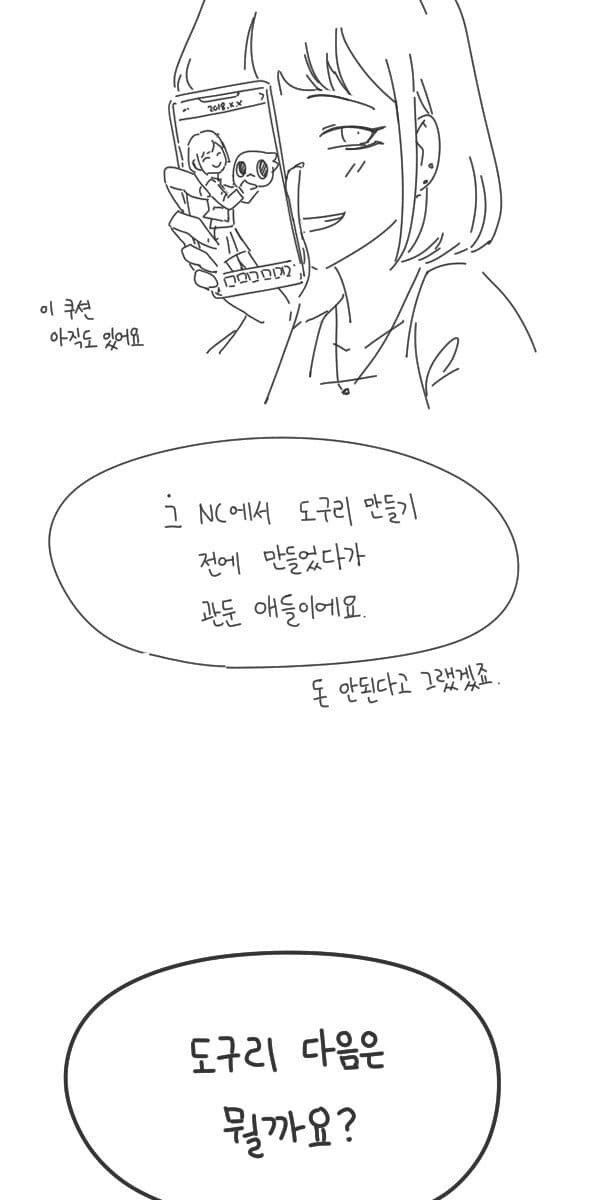 2018.x.x
이 쿠션
아직도 있어요
그 NC에서 도구리 만들기
전에 만들었다가
관둔 애들이에요.
돈 안된다고 그랬겠죠.
도구리 다음은
뭘까요?